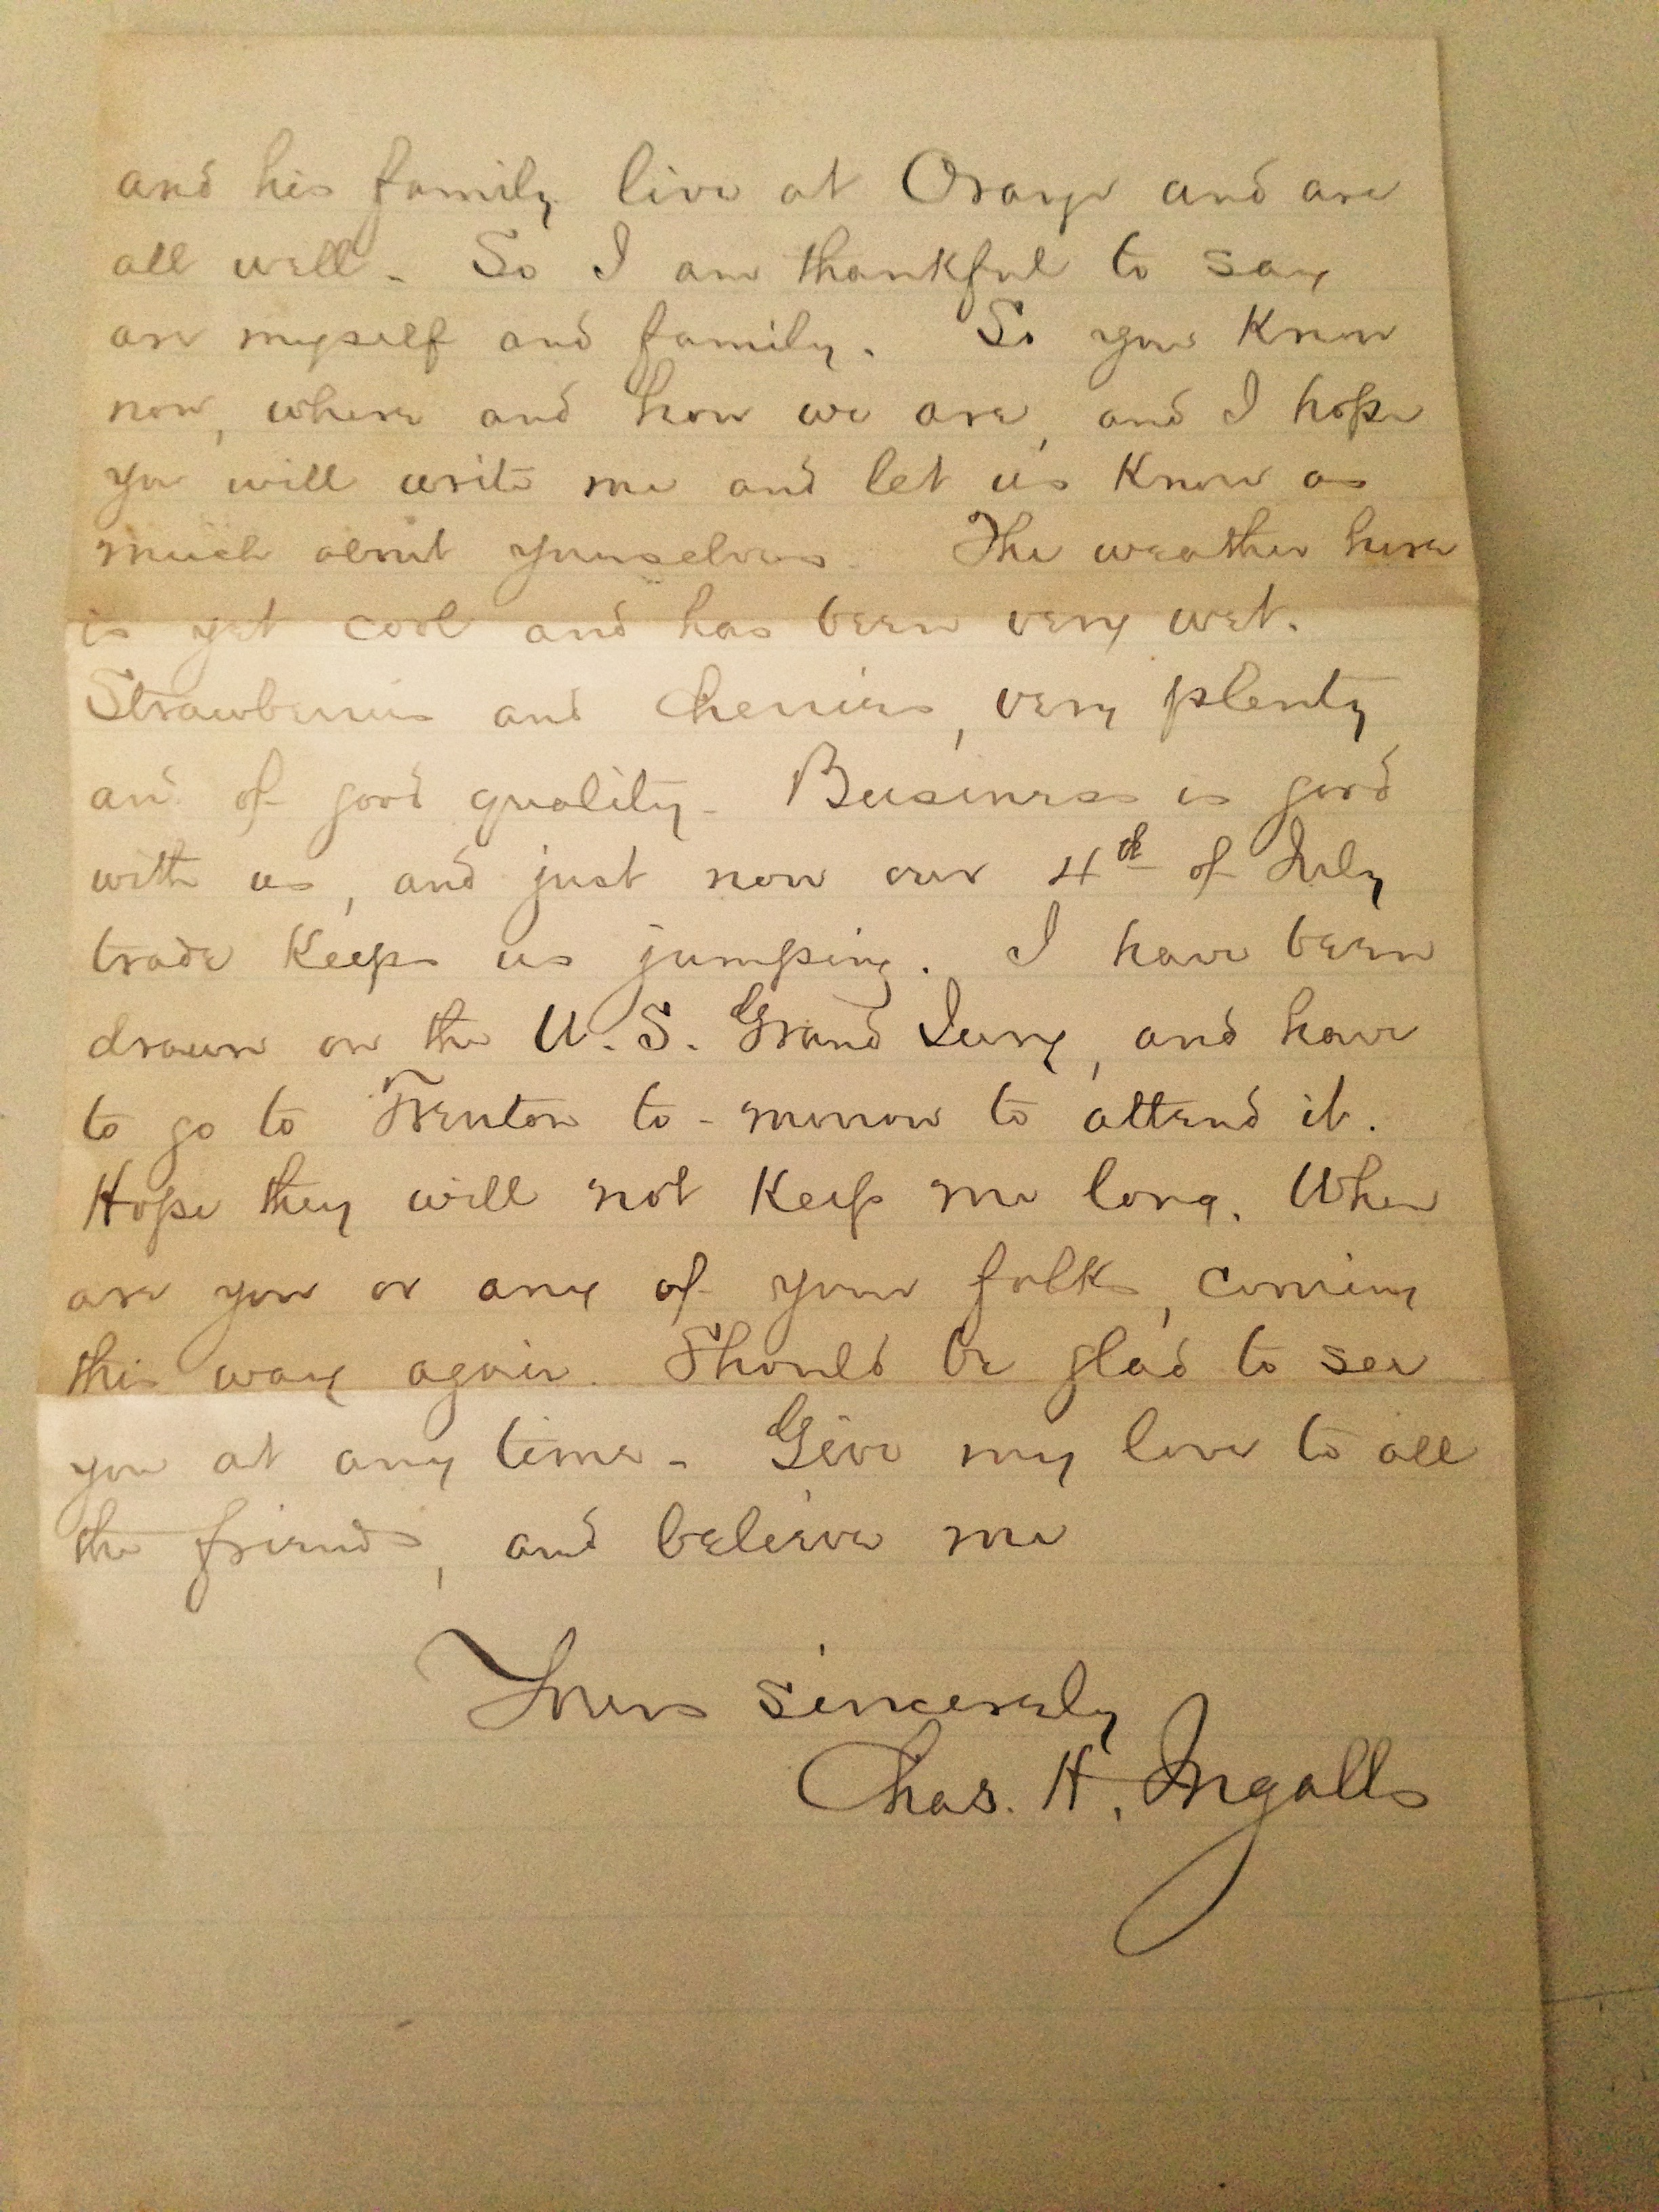 and his family live at Orange and are
all well. So I am thankful to say
are myself and family. So you know
now, where and how we are, and I hope
you will write me and let us know as
much about yourselves. The weather here
is yet cool and has been very wet.
Strawberries and cherries, very plenty
and of good quality. Business is good
with us, and just now our 4th of July
trade keeps us jumping. I have been
drawn on the U.S. Grand Jury, and have
to go to Trenton to-morrow to attend it.
Hope they will not keep me long. When
are you or any of your folks, coming
this way again. Should be glad to see
you at any time. Give my love to all
the friends, and believe me
Yours sincerely
Chas. H. Ingalls